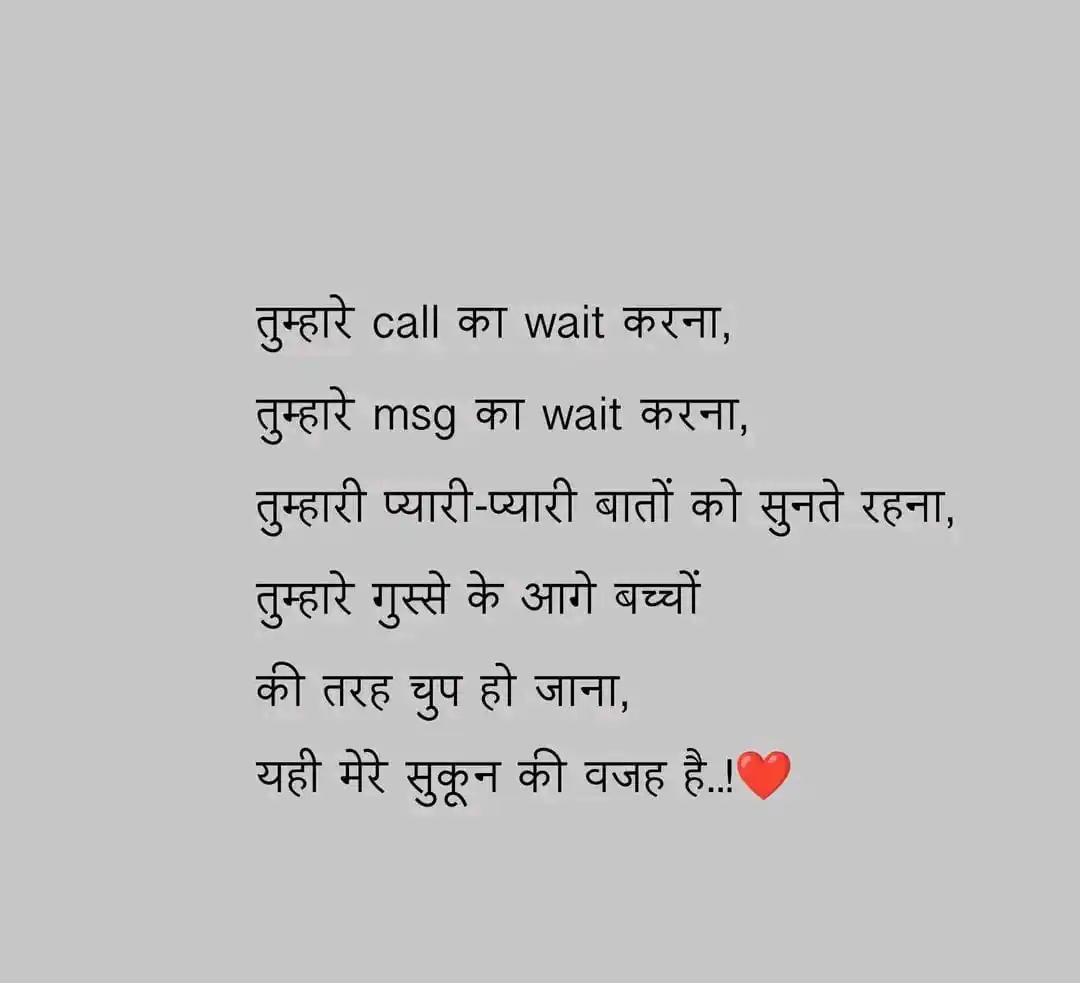 तुम्हारे call का wait करना,
तुम्हारे msg का wait करना,
तुम्हारी प्यारी-प्यारी बातों को सुनते रहना,
तुम्हारे गुस्से के आगे बच्चों
की तरह चुप हो जाना,
यही मेरे सुकून की वजह है..!❤️